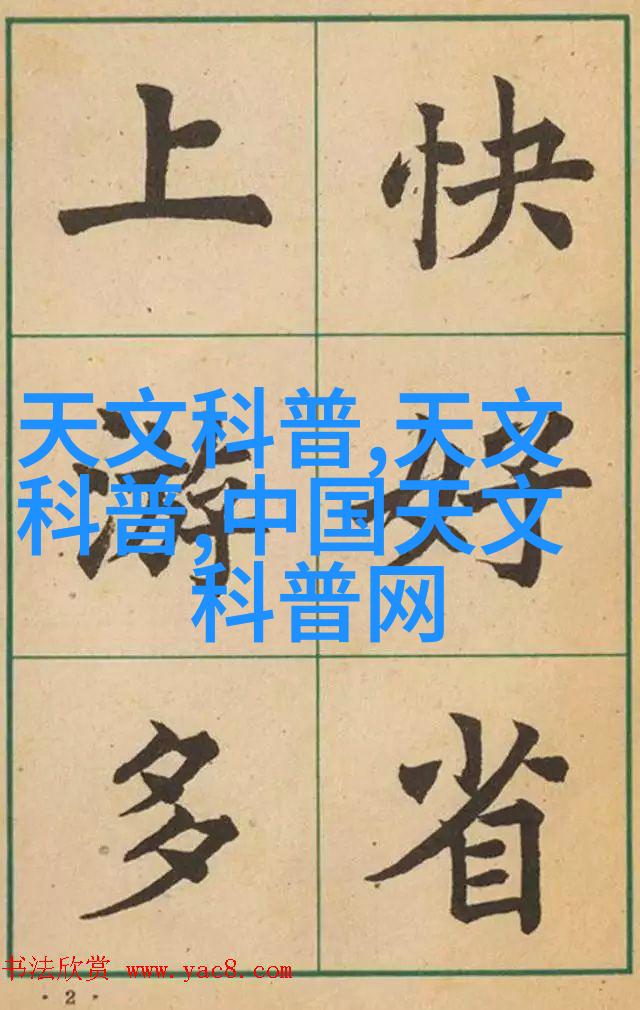 上 快
天文科普,天文
科普,中国天文
科普网
游 好
多 省
书法欣赏 www.yac8.com
· 2 ·